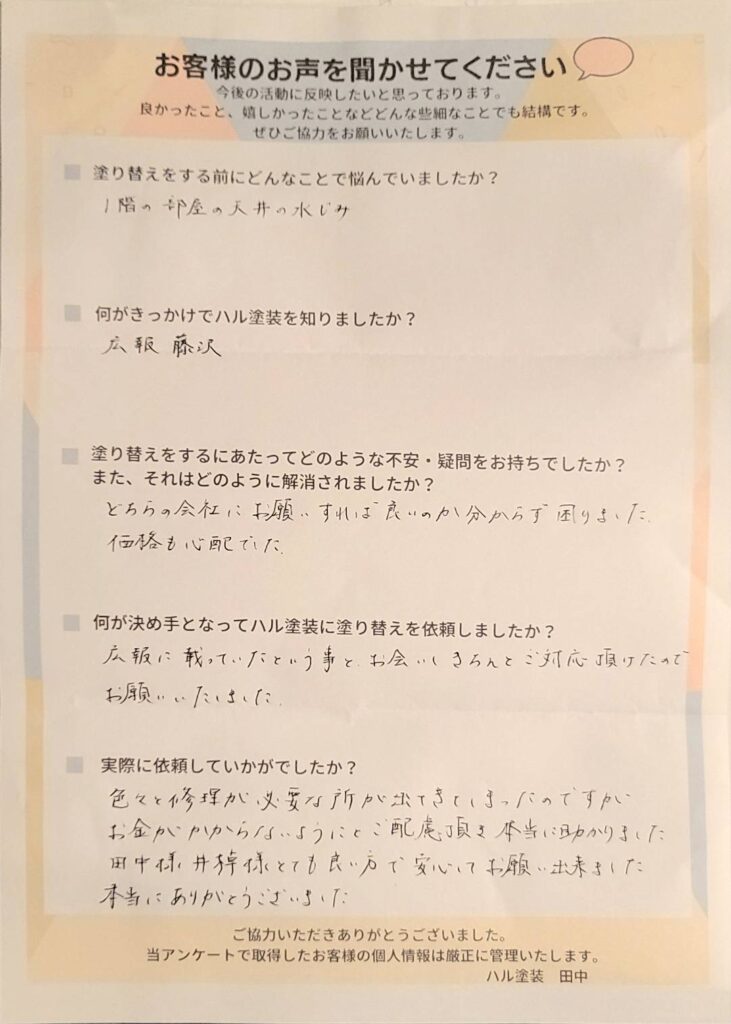 お客様のお声を聞かせてください
今後の活動に反映したいと思っております。
良かったこと、嬉しかったことなどどんな些細なことでも結構です。
ぜひご協力をお願いいたします。
塗り替えをする前にどんなことで悩んでいましたか？
1階の部屋の天井の水じみ
何がきっかけでハル塗装を知りましたか？
広報 藤沢
塗り替えをするにあたってどのような不安・疑問をお持ちでしたか？
また、それはどのように解消されましたか？
どちらの会社にお願いすれば良いのか分からず困りました.
価格も心配でした.
何が決め手となってハル塗装に塗り替えを依頼しましたか？
広報に載っていたという事と、お会いしきちんとご対応頂けたので
お願いいたしました.
実際に依頼していかがでしたか？
色々と修理が必要な所が出てきてしまったのですが
お金がかからないようにとご配慮頂き本当に助かりました
田中様 井 様とても良い方で安心してお願い出来ました
本当にありがとうございました
ご協力いただきありがとうございました。
当アンケートで取得したお客様の個人情報は厳正に管理いたします。
ハル塗装 田中